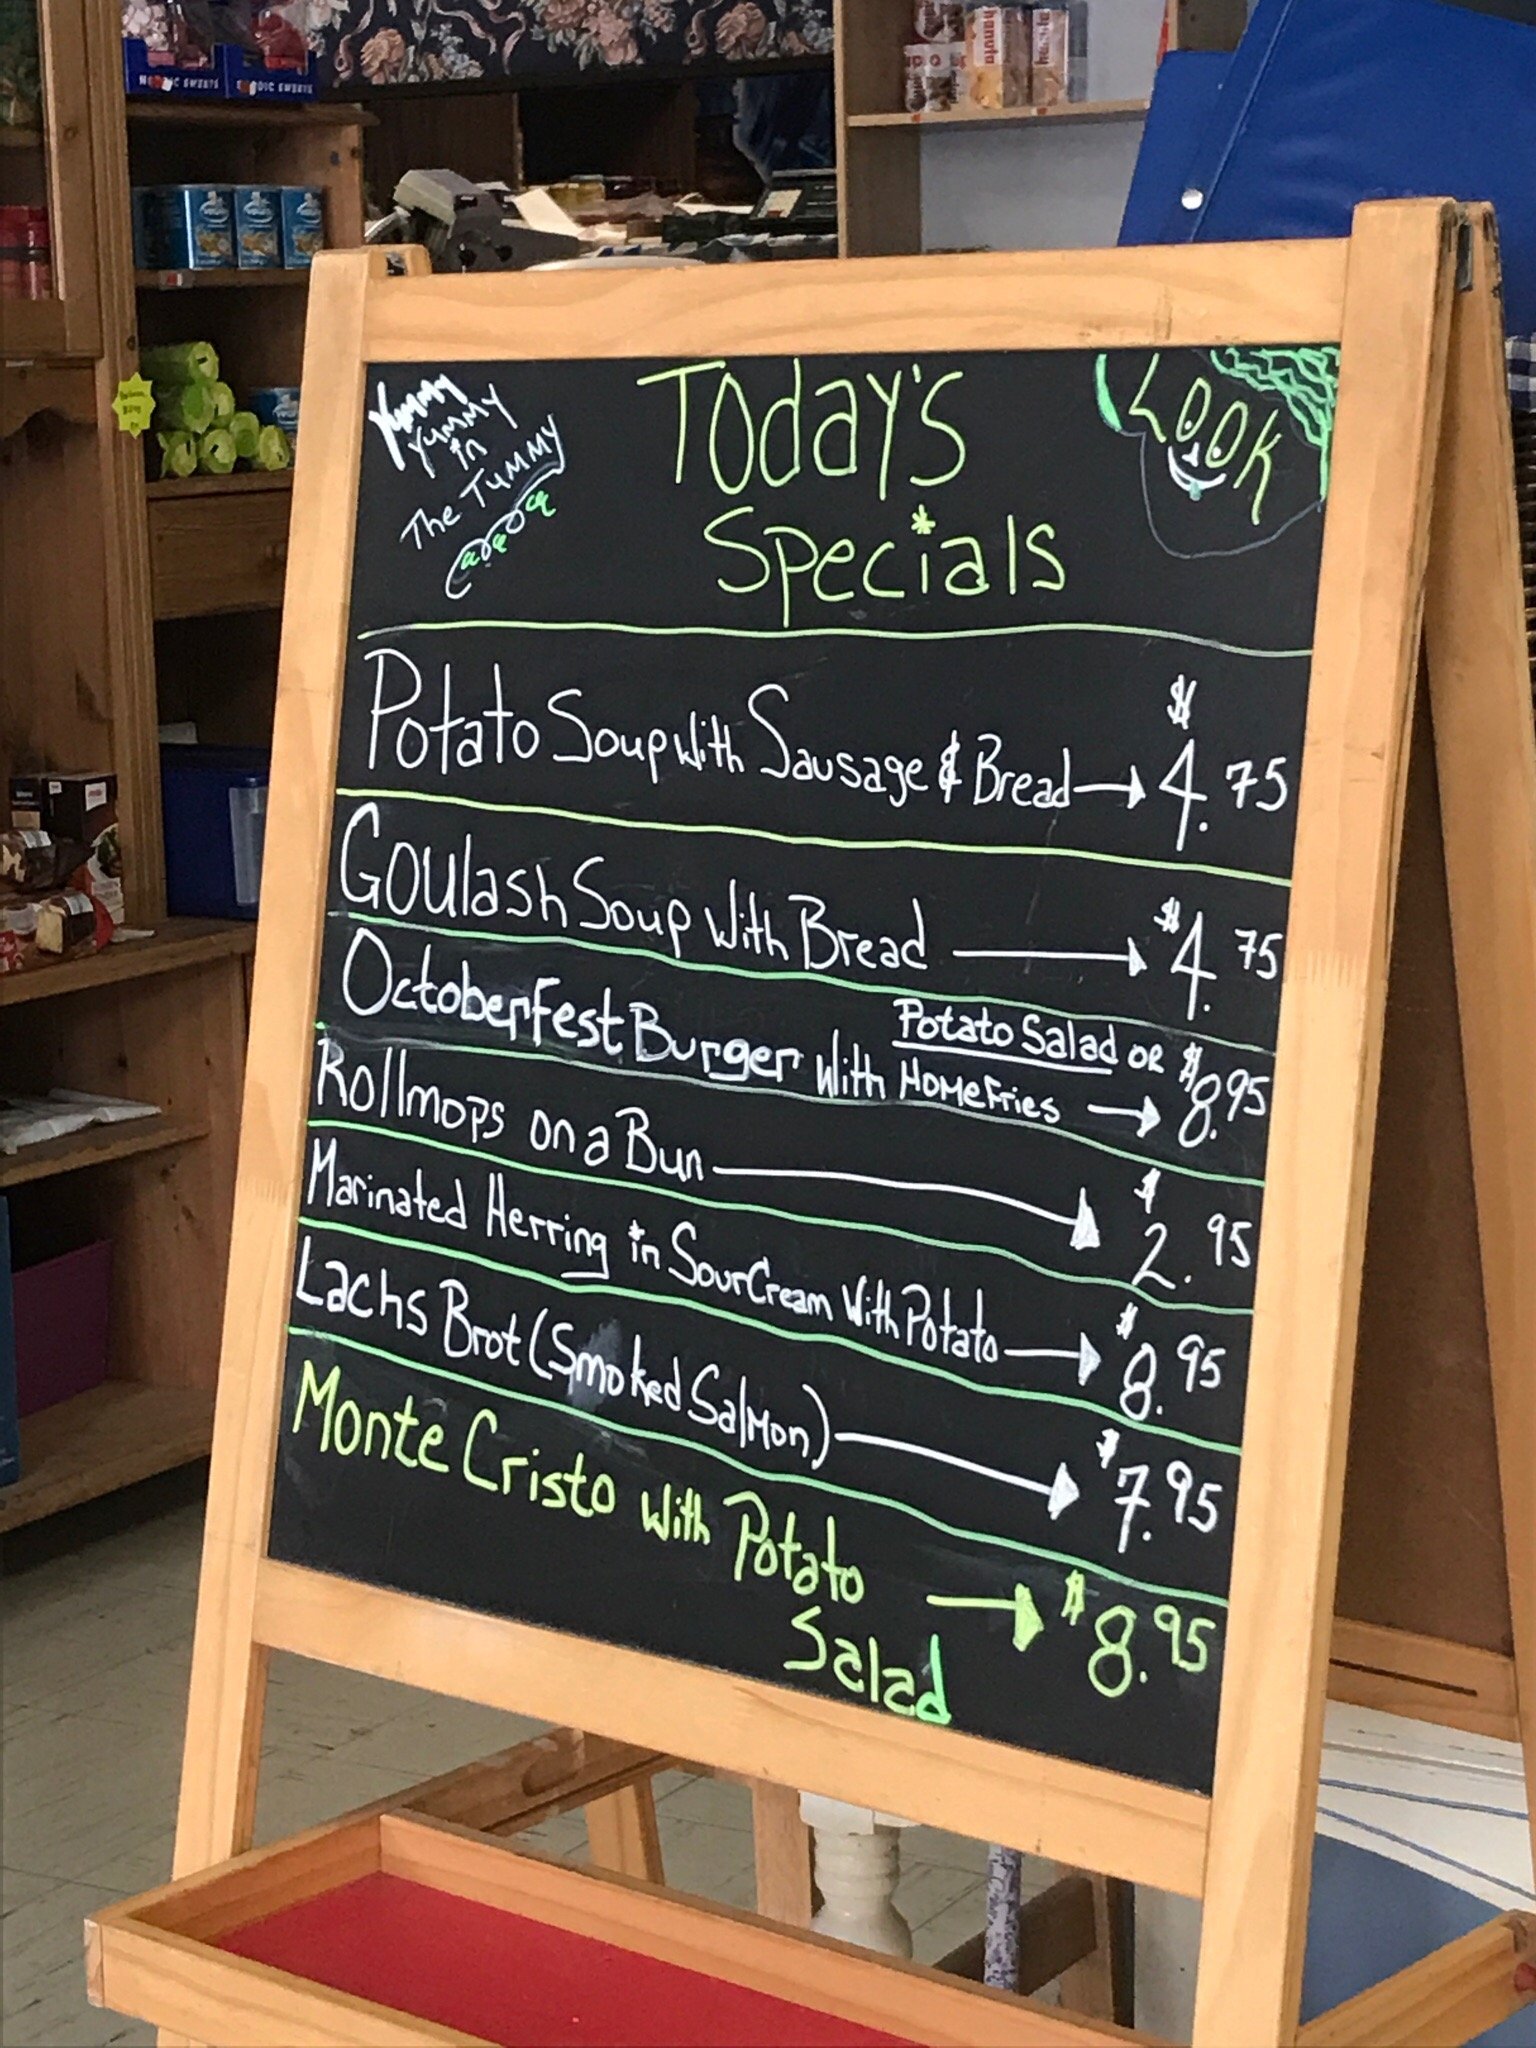 NORDIC SWEETS
NORDIC SWEETS
hanuta
Yummy
Yummy
in
The Tummy
Today's
Specials
LOOK
Potato Soup with Sausage & Bread → $4.75
Goulash Soup with Bread → $4.75
Octoberfest Burger with Potato Salad or
Home Fries → $8.95
Rollmops on a Bun → $2.95
Marinated Herring in Sour Cream with Potato → $8.95
Lachs Brot (Smoked Salmon) → $7.95
Monte Cristo with Potato
Salad → $8.95